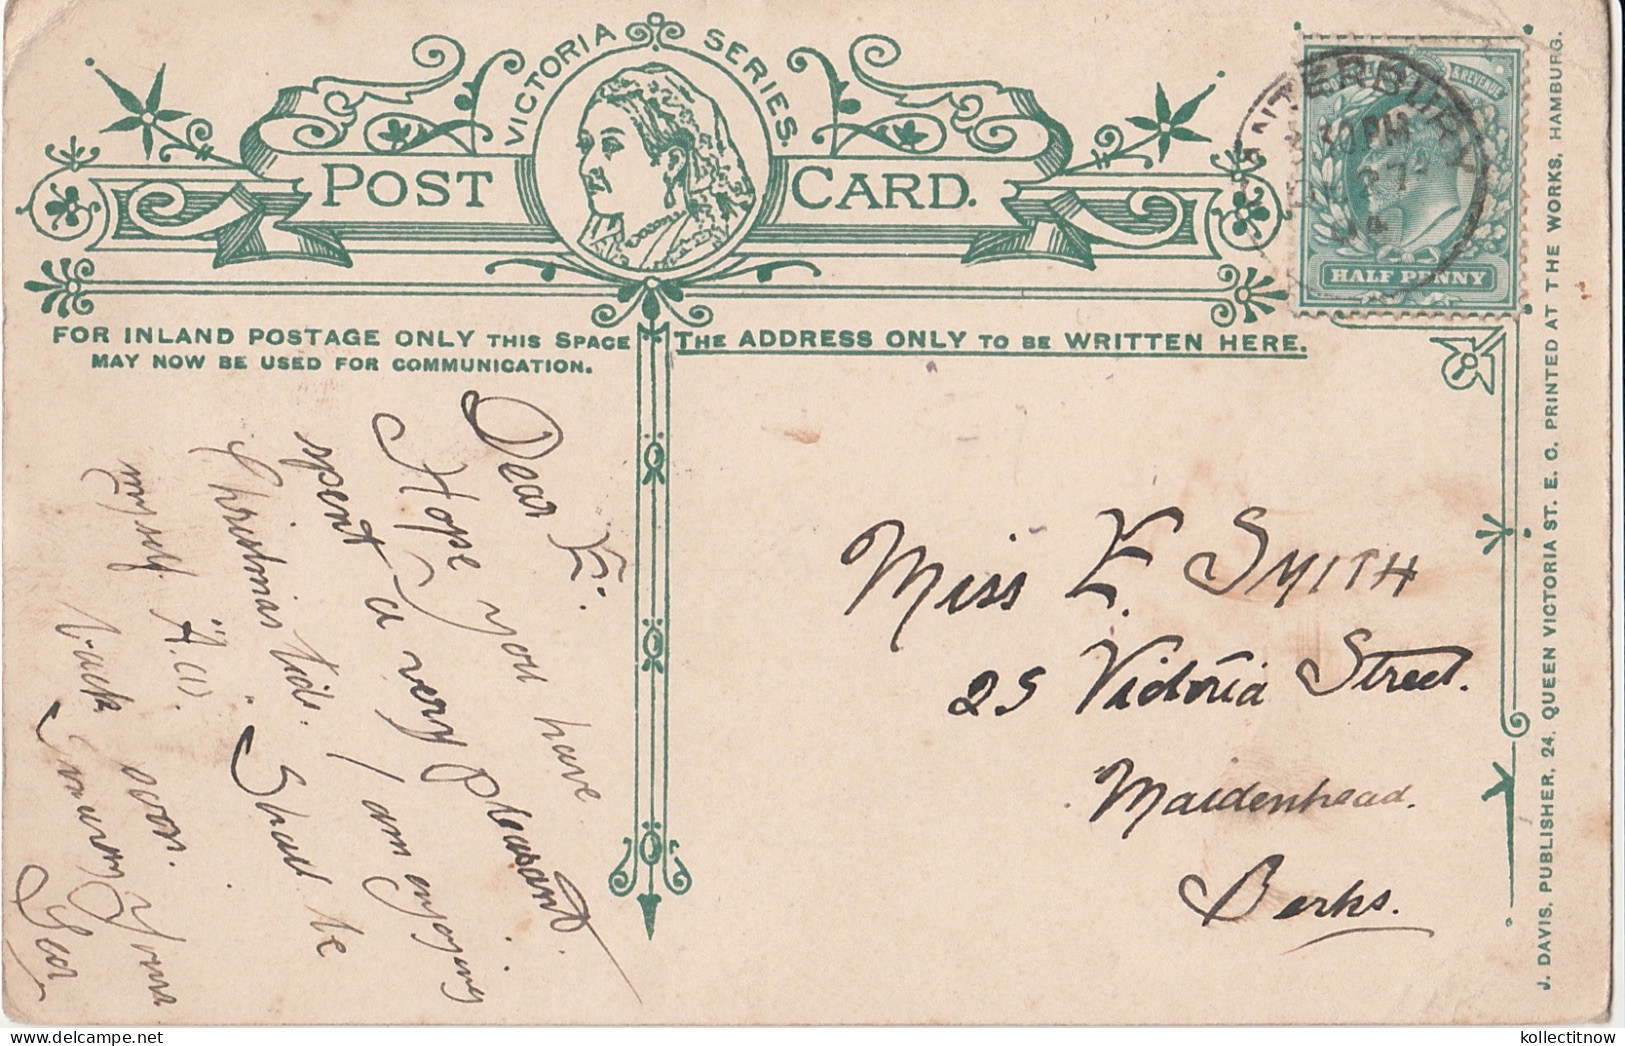 VICTORIA SERIES.
POST CARD.
FOR INLAND POSTAGE ONLY THIS SPACE
MAY NOW BE USED FOR COMMUNICATION.
THE ADDRESS ONLY TO BE WRITTEN HERE.
& REVENUE
HALF PENNY
NTERBURY
30 PM
27
14
Dear E.
Hope you have
spent a very pleasant
Christmas tide. I am enjoying
myself A.(1). Shall be
back soon. Yours
Geo
Miss E. SMITH
25 Victoria Street.
Maidenhead.
Berks.
J. DAVIS, PUBLISHER, 24, QUEEN VICTORIA ST. E. C. PRINTED AT THE WORKS, HAMBURG.
kollectitnow